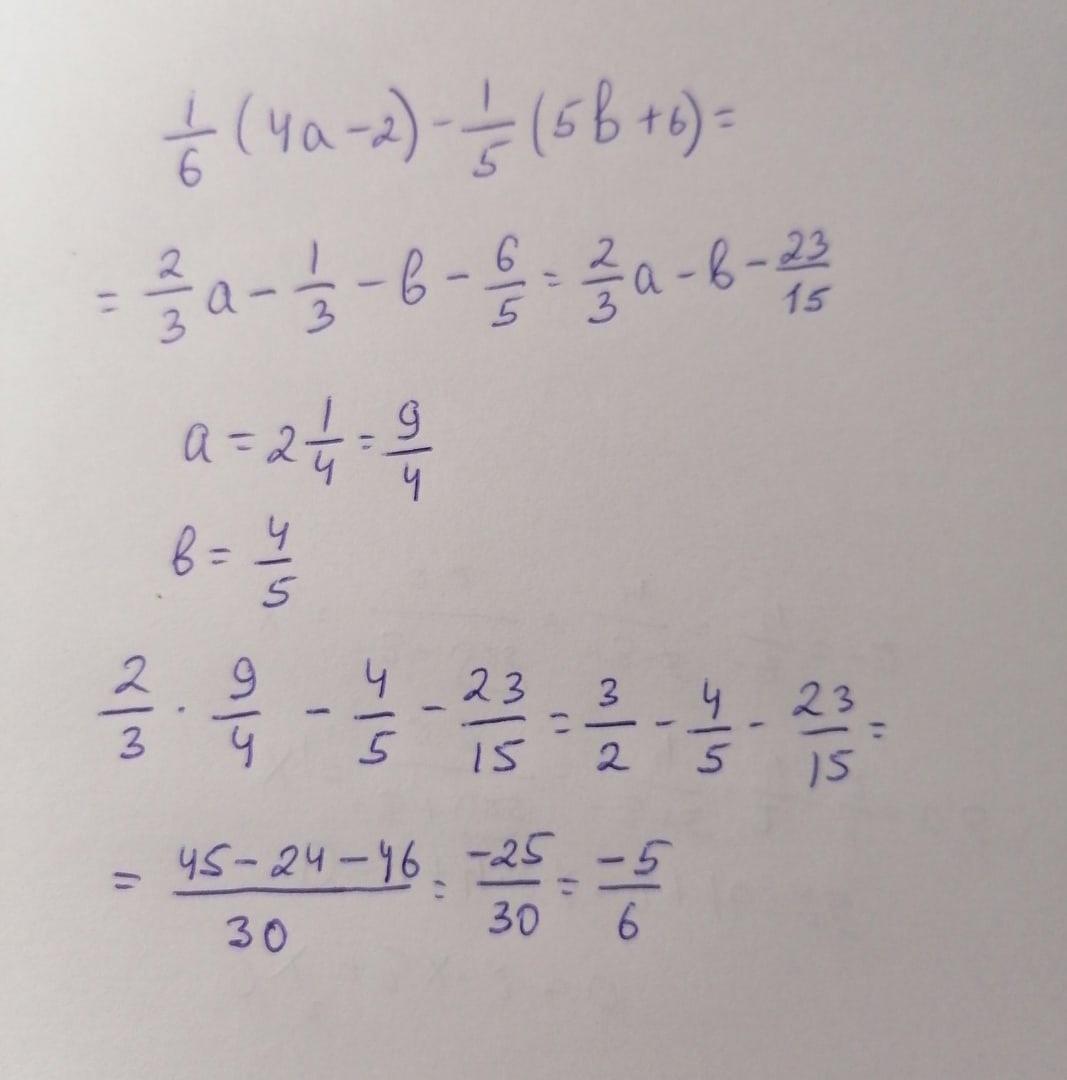 1/6 (4a − 2) − 1/5 (5в + 6) =
= 2/3 a − 1/3 − в − 6/5 = 2/3 a − в − 23/15
a = 2 1/4 = 9/4
в = 4/5
2/3 · 9/4 − 4/5 − 23/15 = 3/2 − 4/5 − 23/15 =
= (45 − 24 − 46)/30 = −25/30 = −5/6